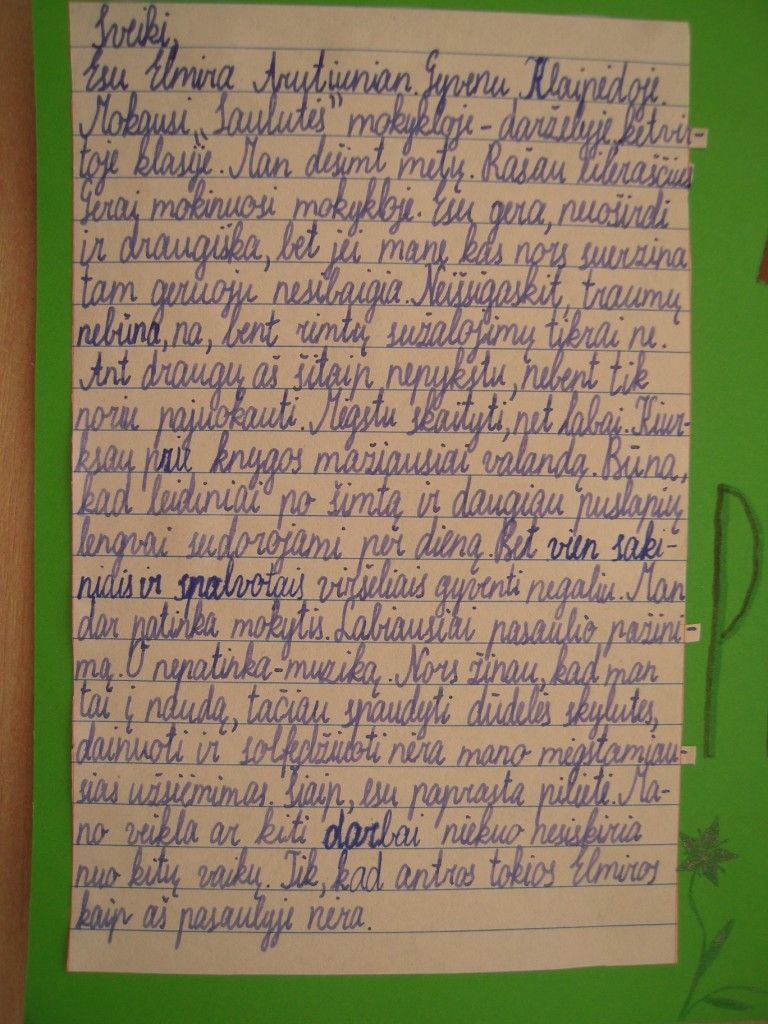 Sveiki,
Esu Elmira Arutiunian. Gyvenu Klaipėdoje.
Mokausi „Saulutės" mokykloje - darželyje, ketvir-
toje klasėje. Man dešimt metų. Rašau eilerašcius
Gerai mokinuosi mokykloje. Esu gera, nuoširdi
ir draugiška, bet jei manę kas nors suerzina
tam geruoju nesibaigia. Neišsigąskit, traumų
nebūna, na, bent rimtų sužalojimų tikrai ne.
Ant draugų aš šitaip nepykstu, nebent tik
noriu pajuokauti. Mėgstu skaityti, net labai. Kiur-
ksau prie knygos mažiausiai valandą. Būna,
kad leidiniai po šimtą ir daugiau puslapių
lengvai sudorojami per dieną. Bet vien saki-
niais ir spalvotais viršeliais gyventi negaliu. Man
dar patinka mokytis. Labiausiai pasaulio pažini-
mą. O nepatinka - muziką. Nors žinau, kad man
tai į naudą, tačiau spaudyti dūdelės skylutes,
dainuoti ir solfedžiuoti nėra mano mėgstamiau-
sias užsiėmimas. Šiaip, esu paprasta pilietė. Ma-
no veikla ar kiti darbai niekuo nesiskiria
nuo kitų vaikų. Tik, kad antros tokios Elmiros
kaip aš pasaulyje nėra.
P